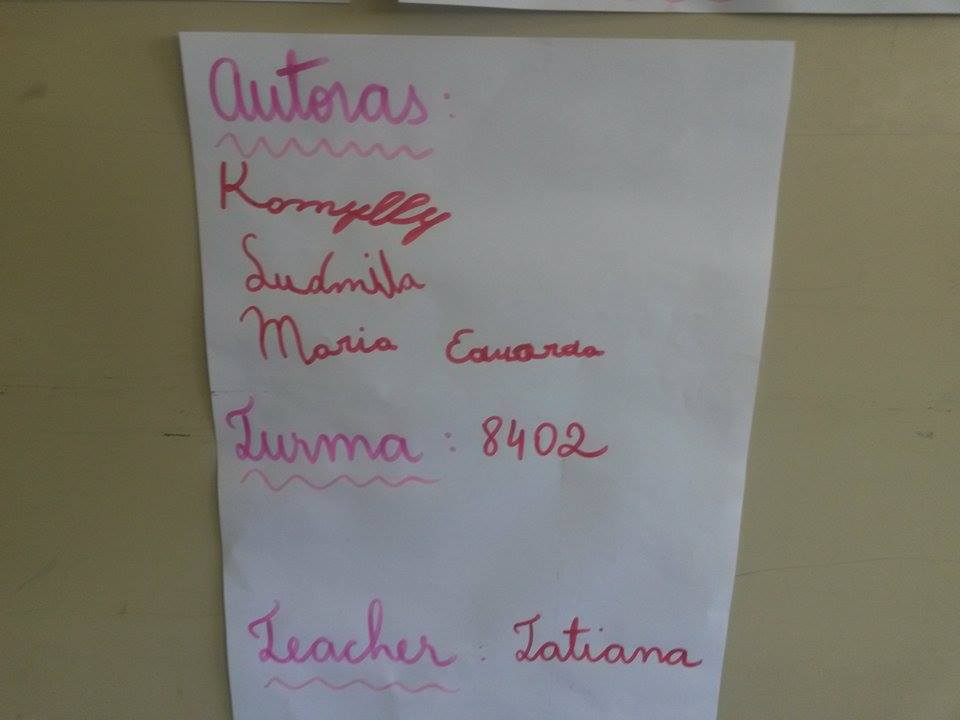 Autoras:
Kamylly
Ludmila
Maria Eduarda
Turma: 8402
Teacher: Tatiana